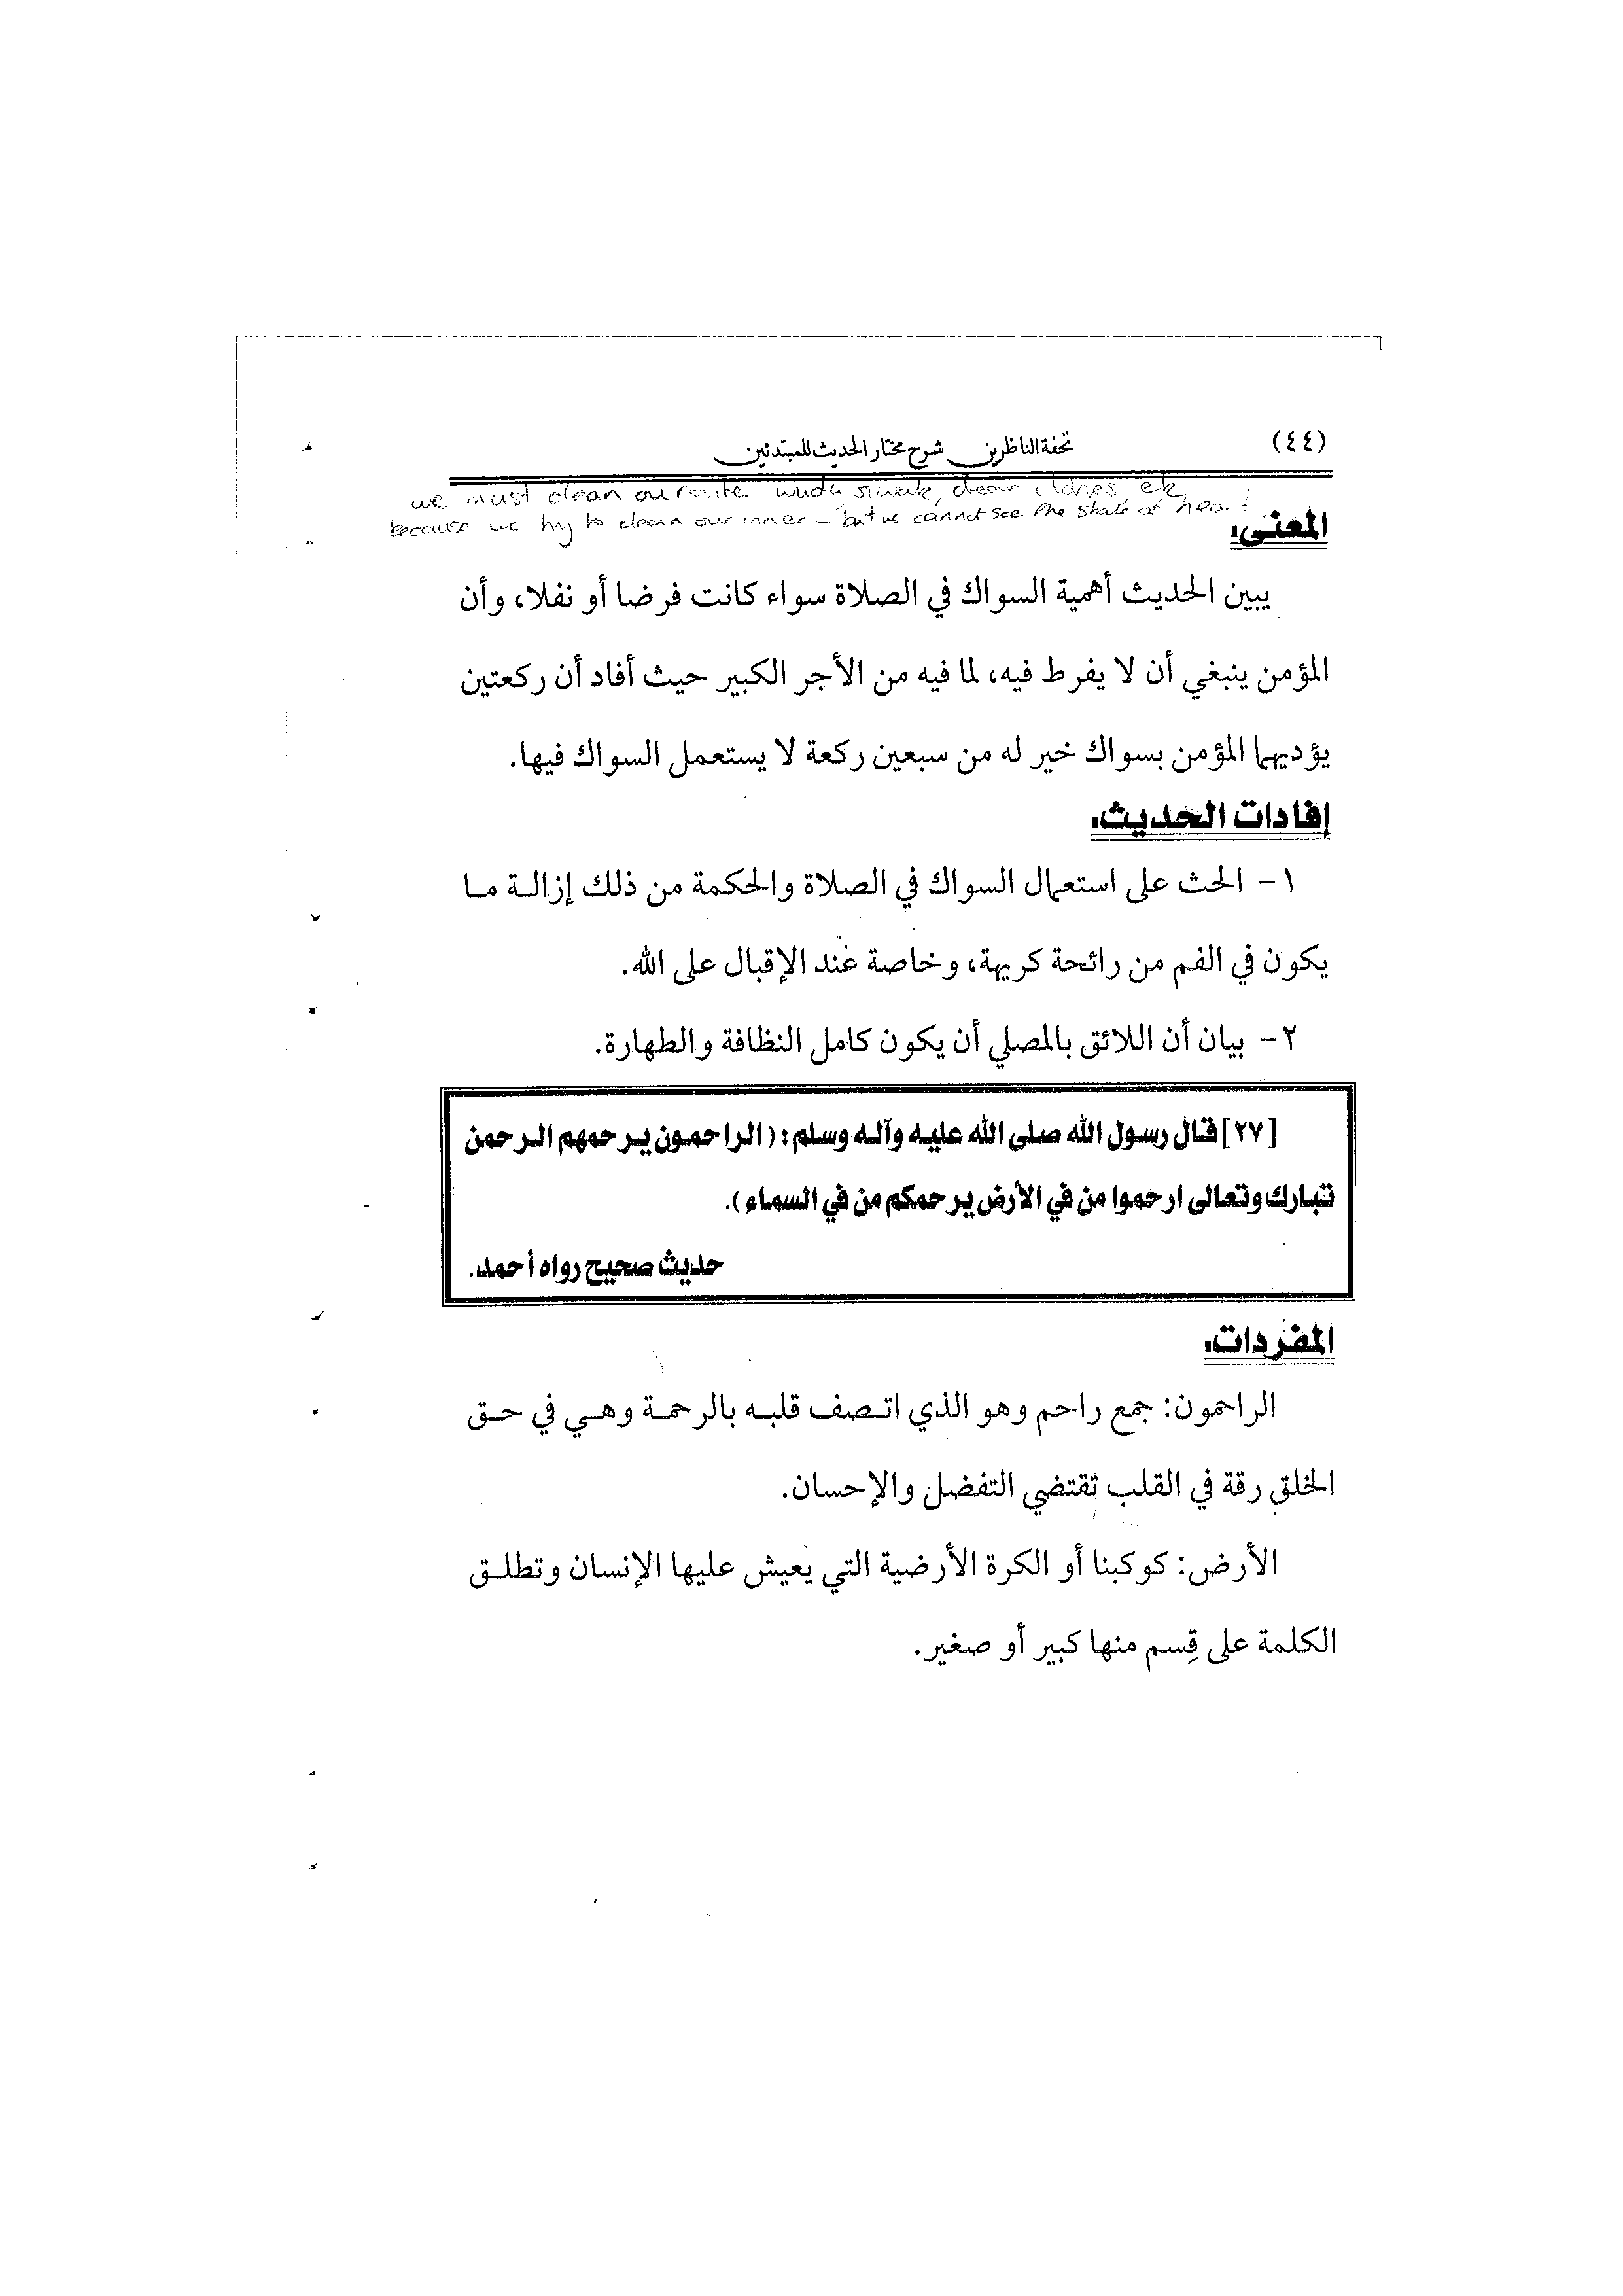 (٤٤) تحفة الناظرين شرح مختار الحديث للمبتدئين
we must clean our outer wudu, siwak, clean clothes etc
because we try to clean our inner – but we cannot see the state of heart
المعنى:
يبين الحديث أهمية السواك في الصلاة سواء كانت فرضا أو نفلا، وأن
المؤمن ينبغي أن لا يفرط فيه، لما فيه من الأجر الكبير حيث أفاد أن ركعتين
يؤديهما المؤمن بسواك خير له من سبعين ركعة لا يستعمل السواك فيها.
إفادات الحديث:
١- الحث على استعمال السواك في الصلاة والحكمة من ذلك إزالة ما
يكون في الفم من رائحة كريهة، وخاصة عند الإقبال على الله.
٢- بيان أن اللائق بالمصلي أن يكون كامل النظافة والطهارة.
[٢٧] قال رسول الله صلى الله عليه وآله وسلم: (الراحمون يرحمهم الرحمن
تبارك وتعالى ارحموا من في الأرض يرحمكم من في السماء).
حديث صحيح رواه أحمد.
المفردات:
الراحمون: جمع راحم وهو الذي اتصف قلبه بالرحمة وهي في حق
الخلق رقة في القلب تقتضي التفضل والإحسان.
الأرض: كوكبنا أو الكرة الأرضية التي يعيش عليها الإنسان وتطلق
الكلمة على قِسم منها كبير أو صغير.